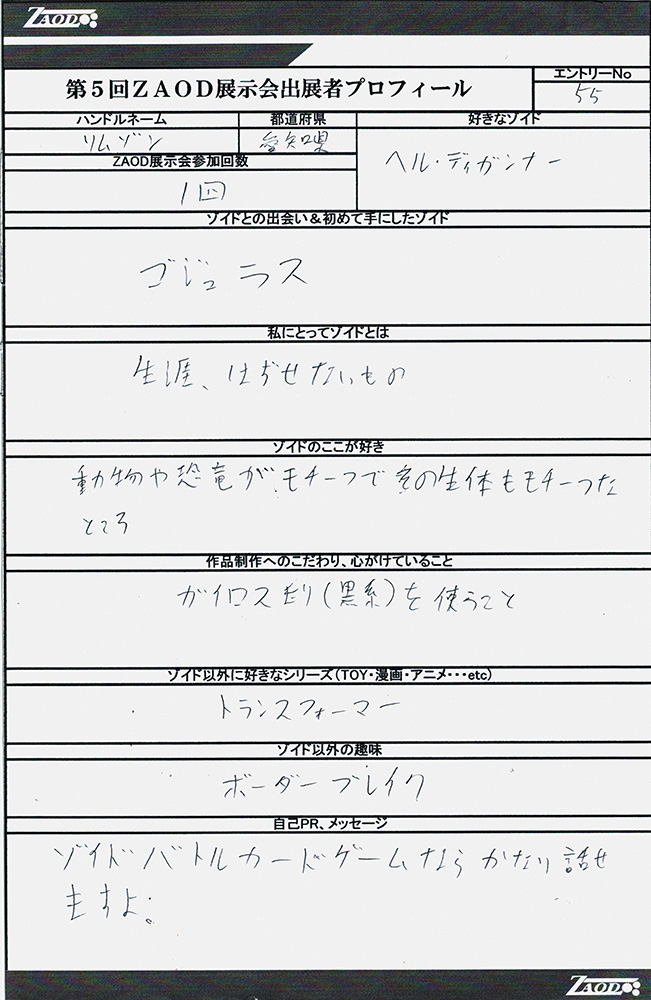 ZAOD
第5回ZAOD展示会出展者プロフィール
エントリーNo
55
ハンドルネーム
リムゾン
都道府県
愛知県
好きなゾイド
ヘル・ディガンナー
ZAOD展示会参加回数
1回
ゾイドとの出会い&初めて手にしたゾイド
ゴジュラス
私にとってゾイドとは
生涯、はずせないもの
ゾイドのここが好き
動物や恐竜がモチーフで の生体もモチーフな
ところ
作品制作へのこだわり、心がけていること
ガイロス寄り(黒系)を使うこと
ゾイド以外に好きなシリーズ(TOY・漫画・アニメ・・・etc)
トランスフォーマー
ゾイド以外の趣味
ボーダーブレイク
自己PR、メッセージ
ゾイドバトルカードゲームならかなり話せ
ますよ。
ZAOD